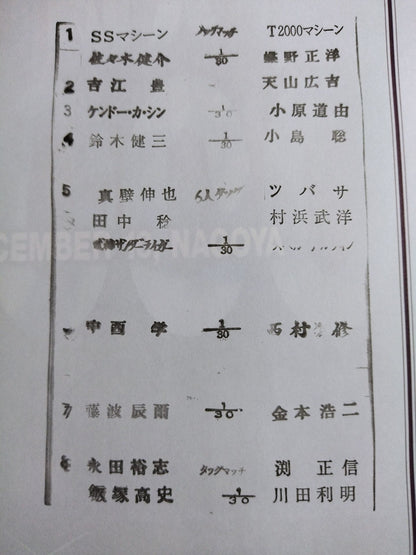 1 SSマシーン タッグマッチ T2000マシーン
佐々木健介 1/30 蝶野正洋
2 吉江豊 天山広吉
3 ケンドー・カ・シン 1/30 小原道由
4 鈴木健三 1/30 小島聡
5 真壁伸也 6人タッグ ツバサ
田中稔 村浜武洋
獣神サンダーライガー 1/30
CEMBER NAGOYA
中西学 1/30 西村修
7 藤波辰爾 1/30 金本浩二
8 永田裕志 タッグマッチ 渕正信
飯塚高史 1/30 川田利明